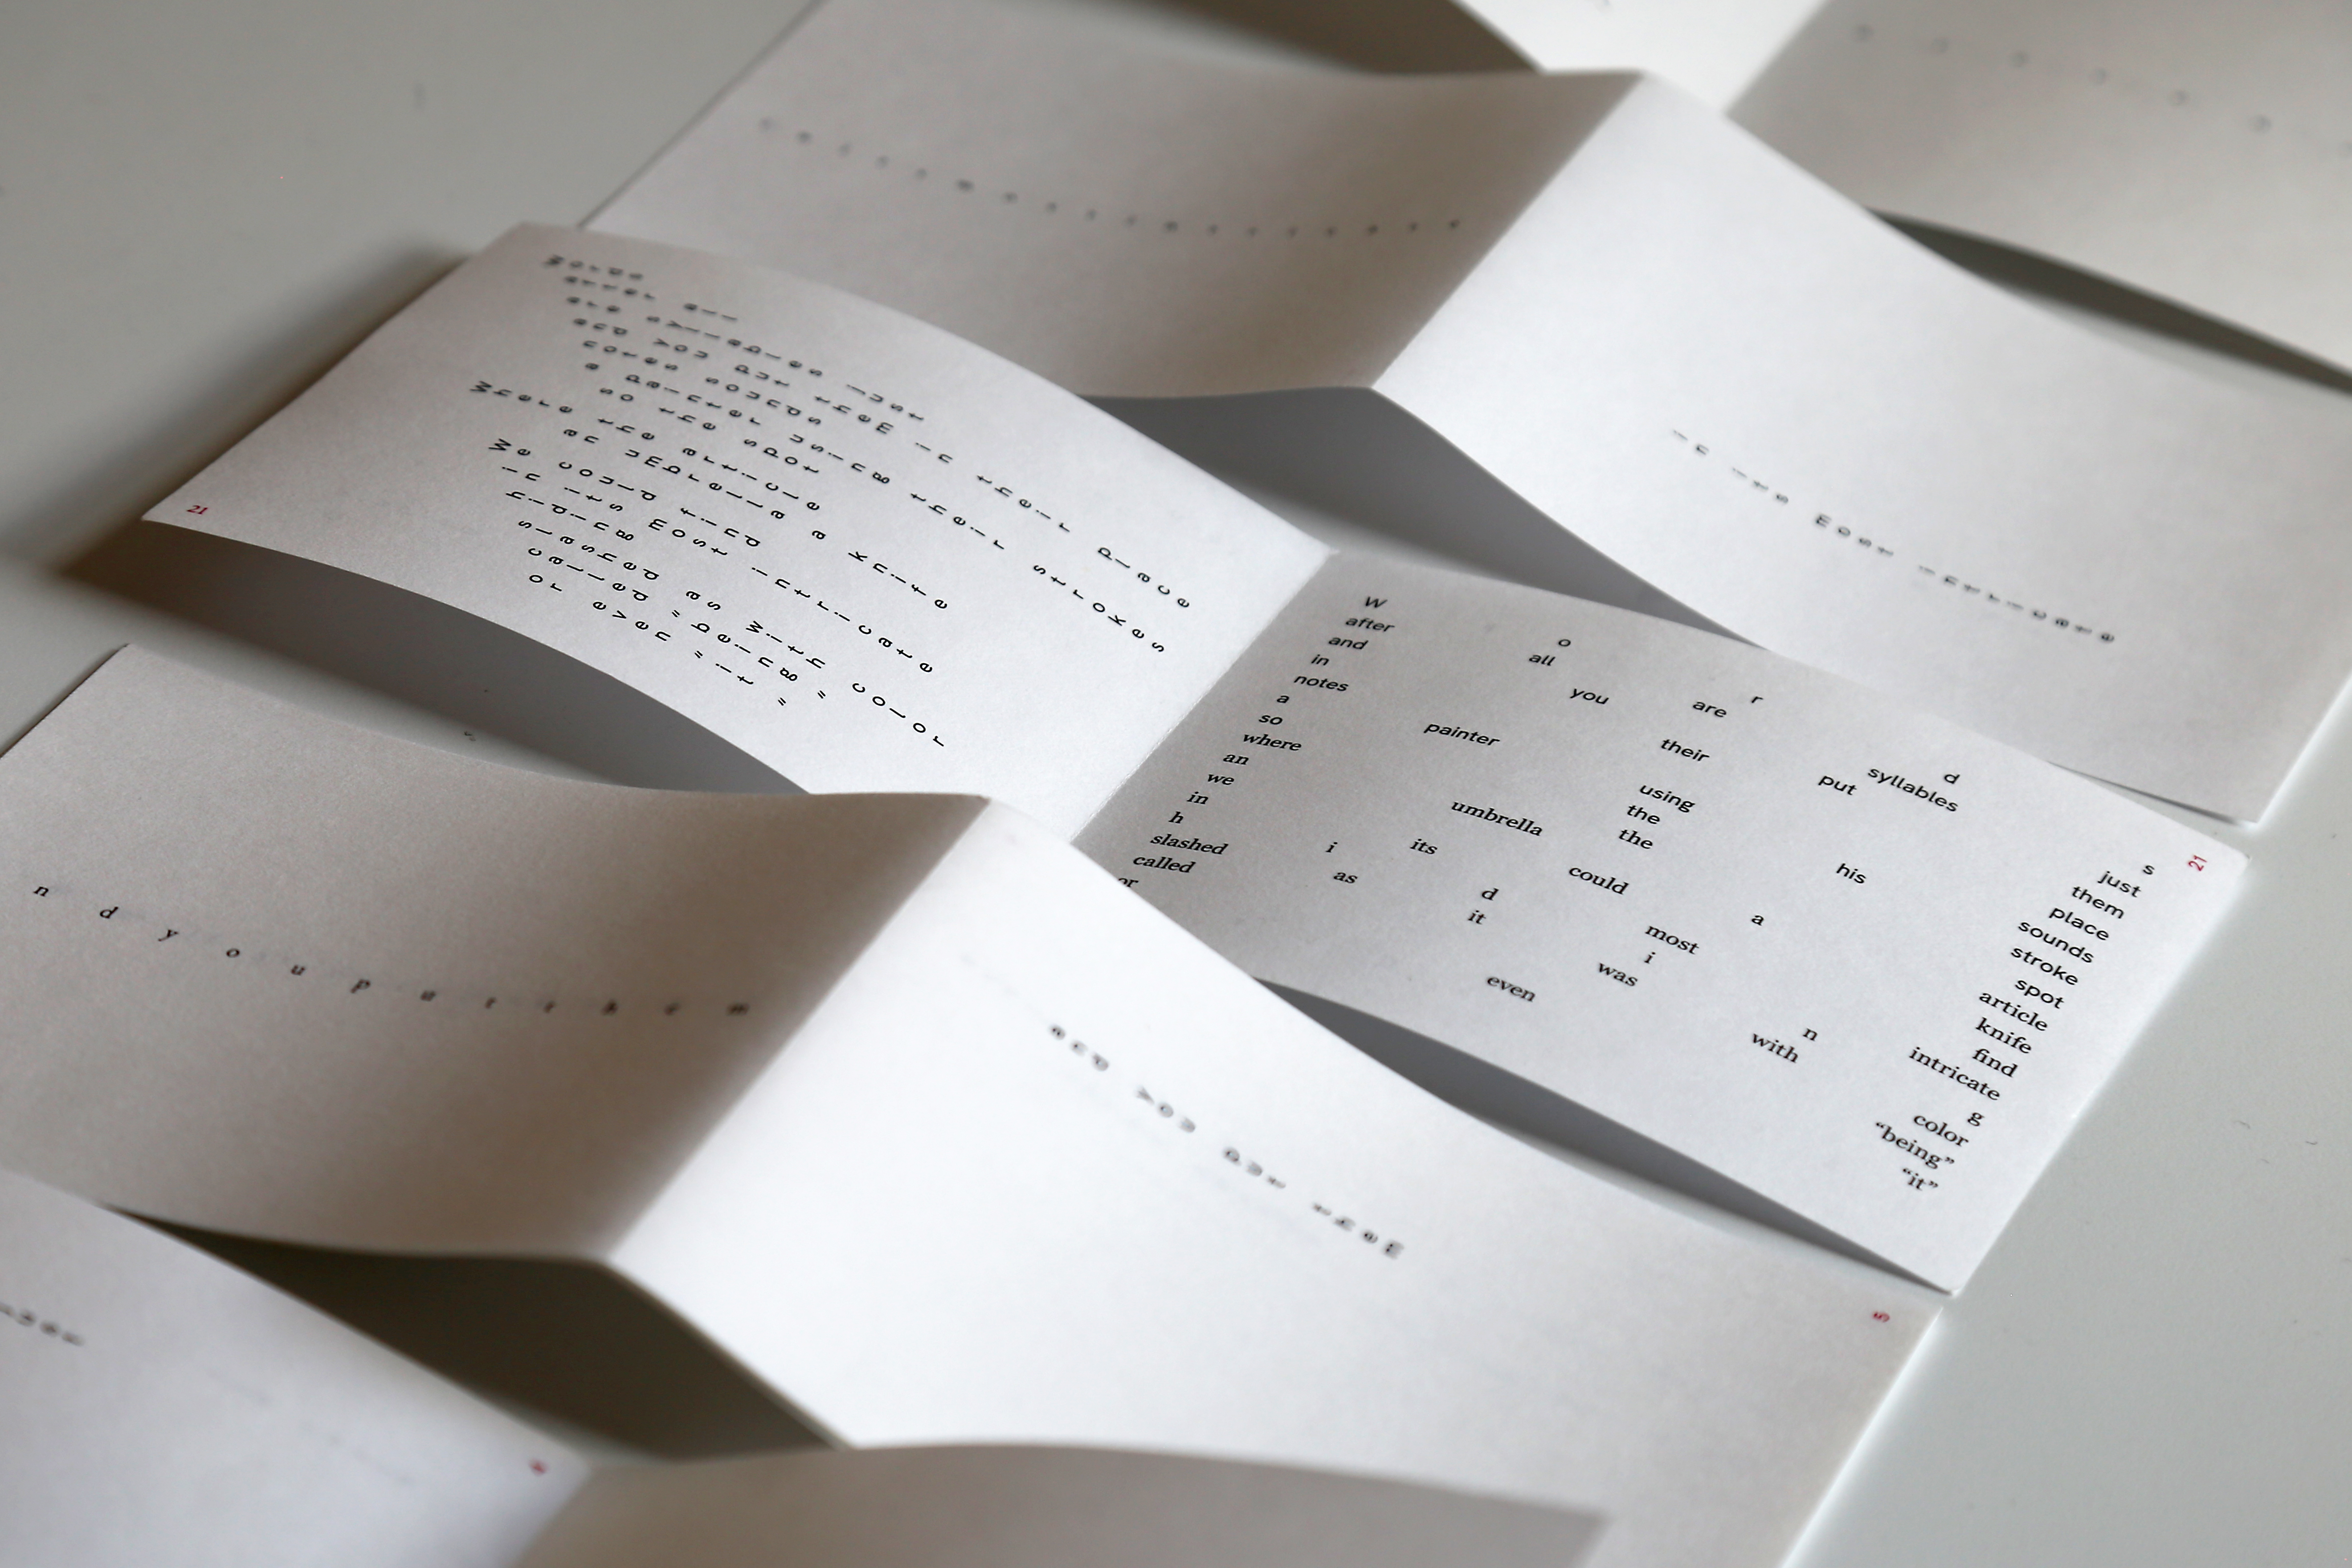 in its most intricate
Words
after all
are syllables just
and you put them in their place
notes sounds
a painter using their strokes
so the spot
Where the article
an umbrella a knife
We could find
in its most intricate
hiding
slashed as with color
called "being"
or even "it"
21
W o r d s
after all are syllables just
and you put them
in their place
notes sounds
a painter using his stroke
so the spot
where the article
an umbrella a knife
we could find
in its most intricate
h i d i n g
slashed as it was with color
called “being”
or even “it”
21
n d y o u p u t t h e m
and you put them
5